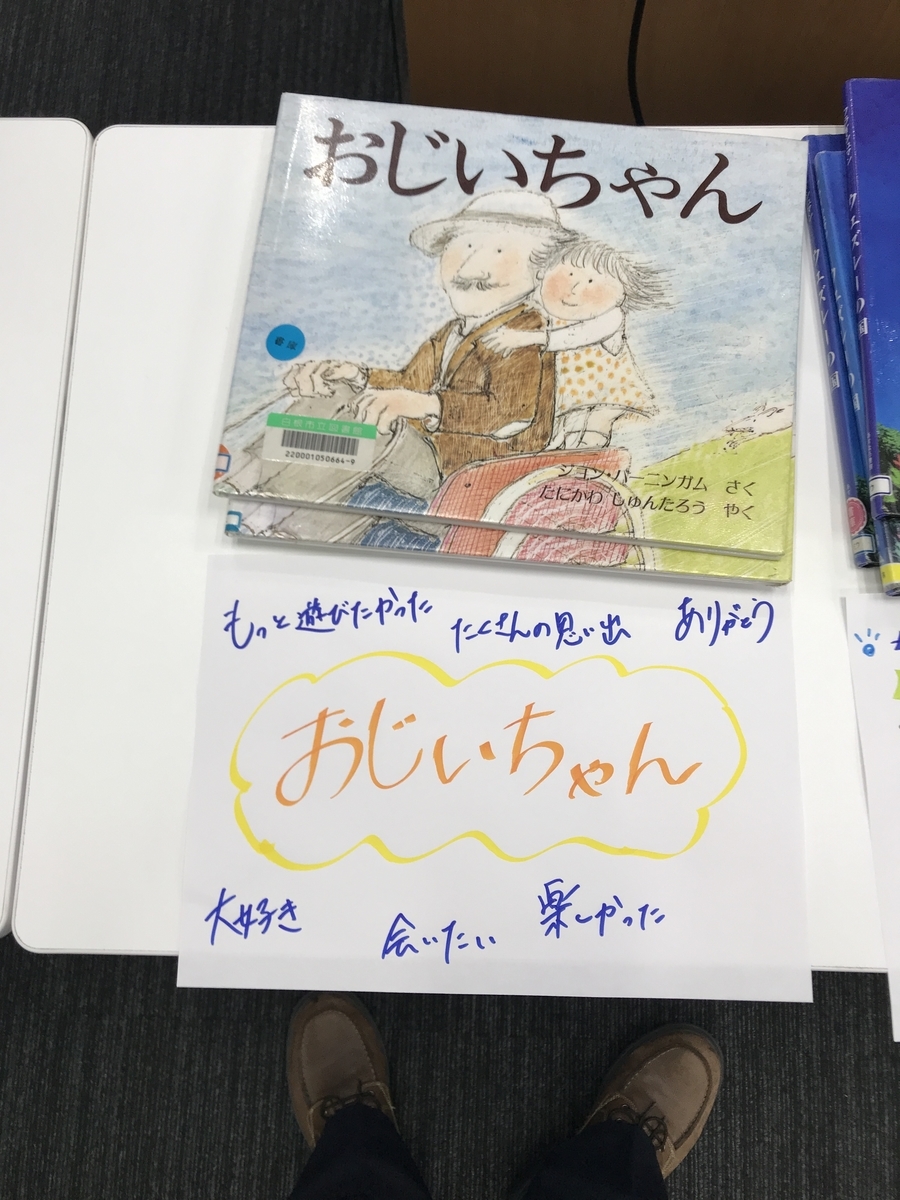 おじいちゃん
白根市立図書館
220001050664-9
ジョン・バーニンガム さく
たにかわ しゅんたろう やく
もっと遊びたかった
たくさんの思い出
ありがとう
おじいちゃん
大好き
会いたい
楽しかった